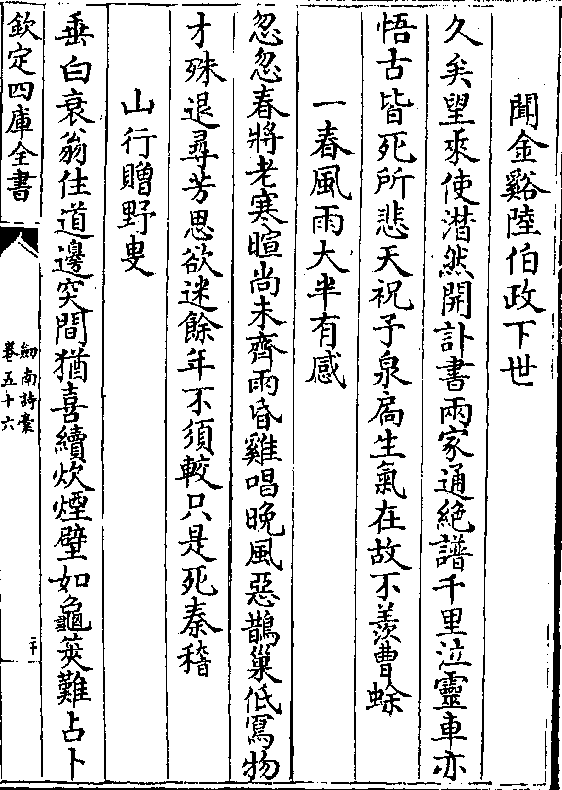 聞金谿陸伯政下世
久矣望來使潸然開訃書兩家通絶譜千里泣靈車亦
悟古皆死所悲天祝予泉扄生氣在故不羨曹蜍
一春風雨大半有感
忽忽春將老寒暄尚未齊雨昏雞唱晚風惡鵲巢低寫物
才殊退尋芳思欲迷餘年不須較只是死秦稽
山行贈野叟
垂白衰翁住道邊突間猶喜續炊煙壁如龜筴難占卜
欽定四庫全書
劒南詩稾
卷五十六
二十